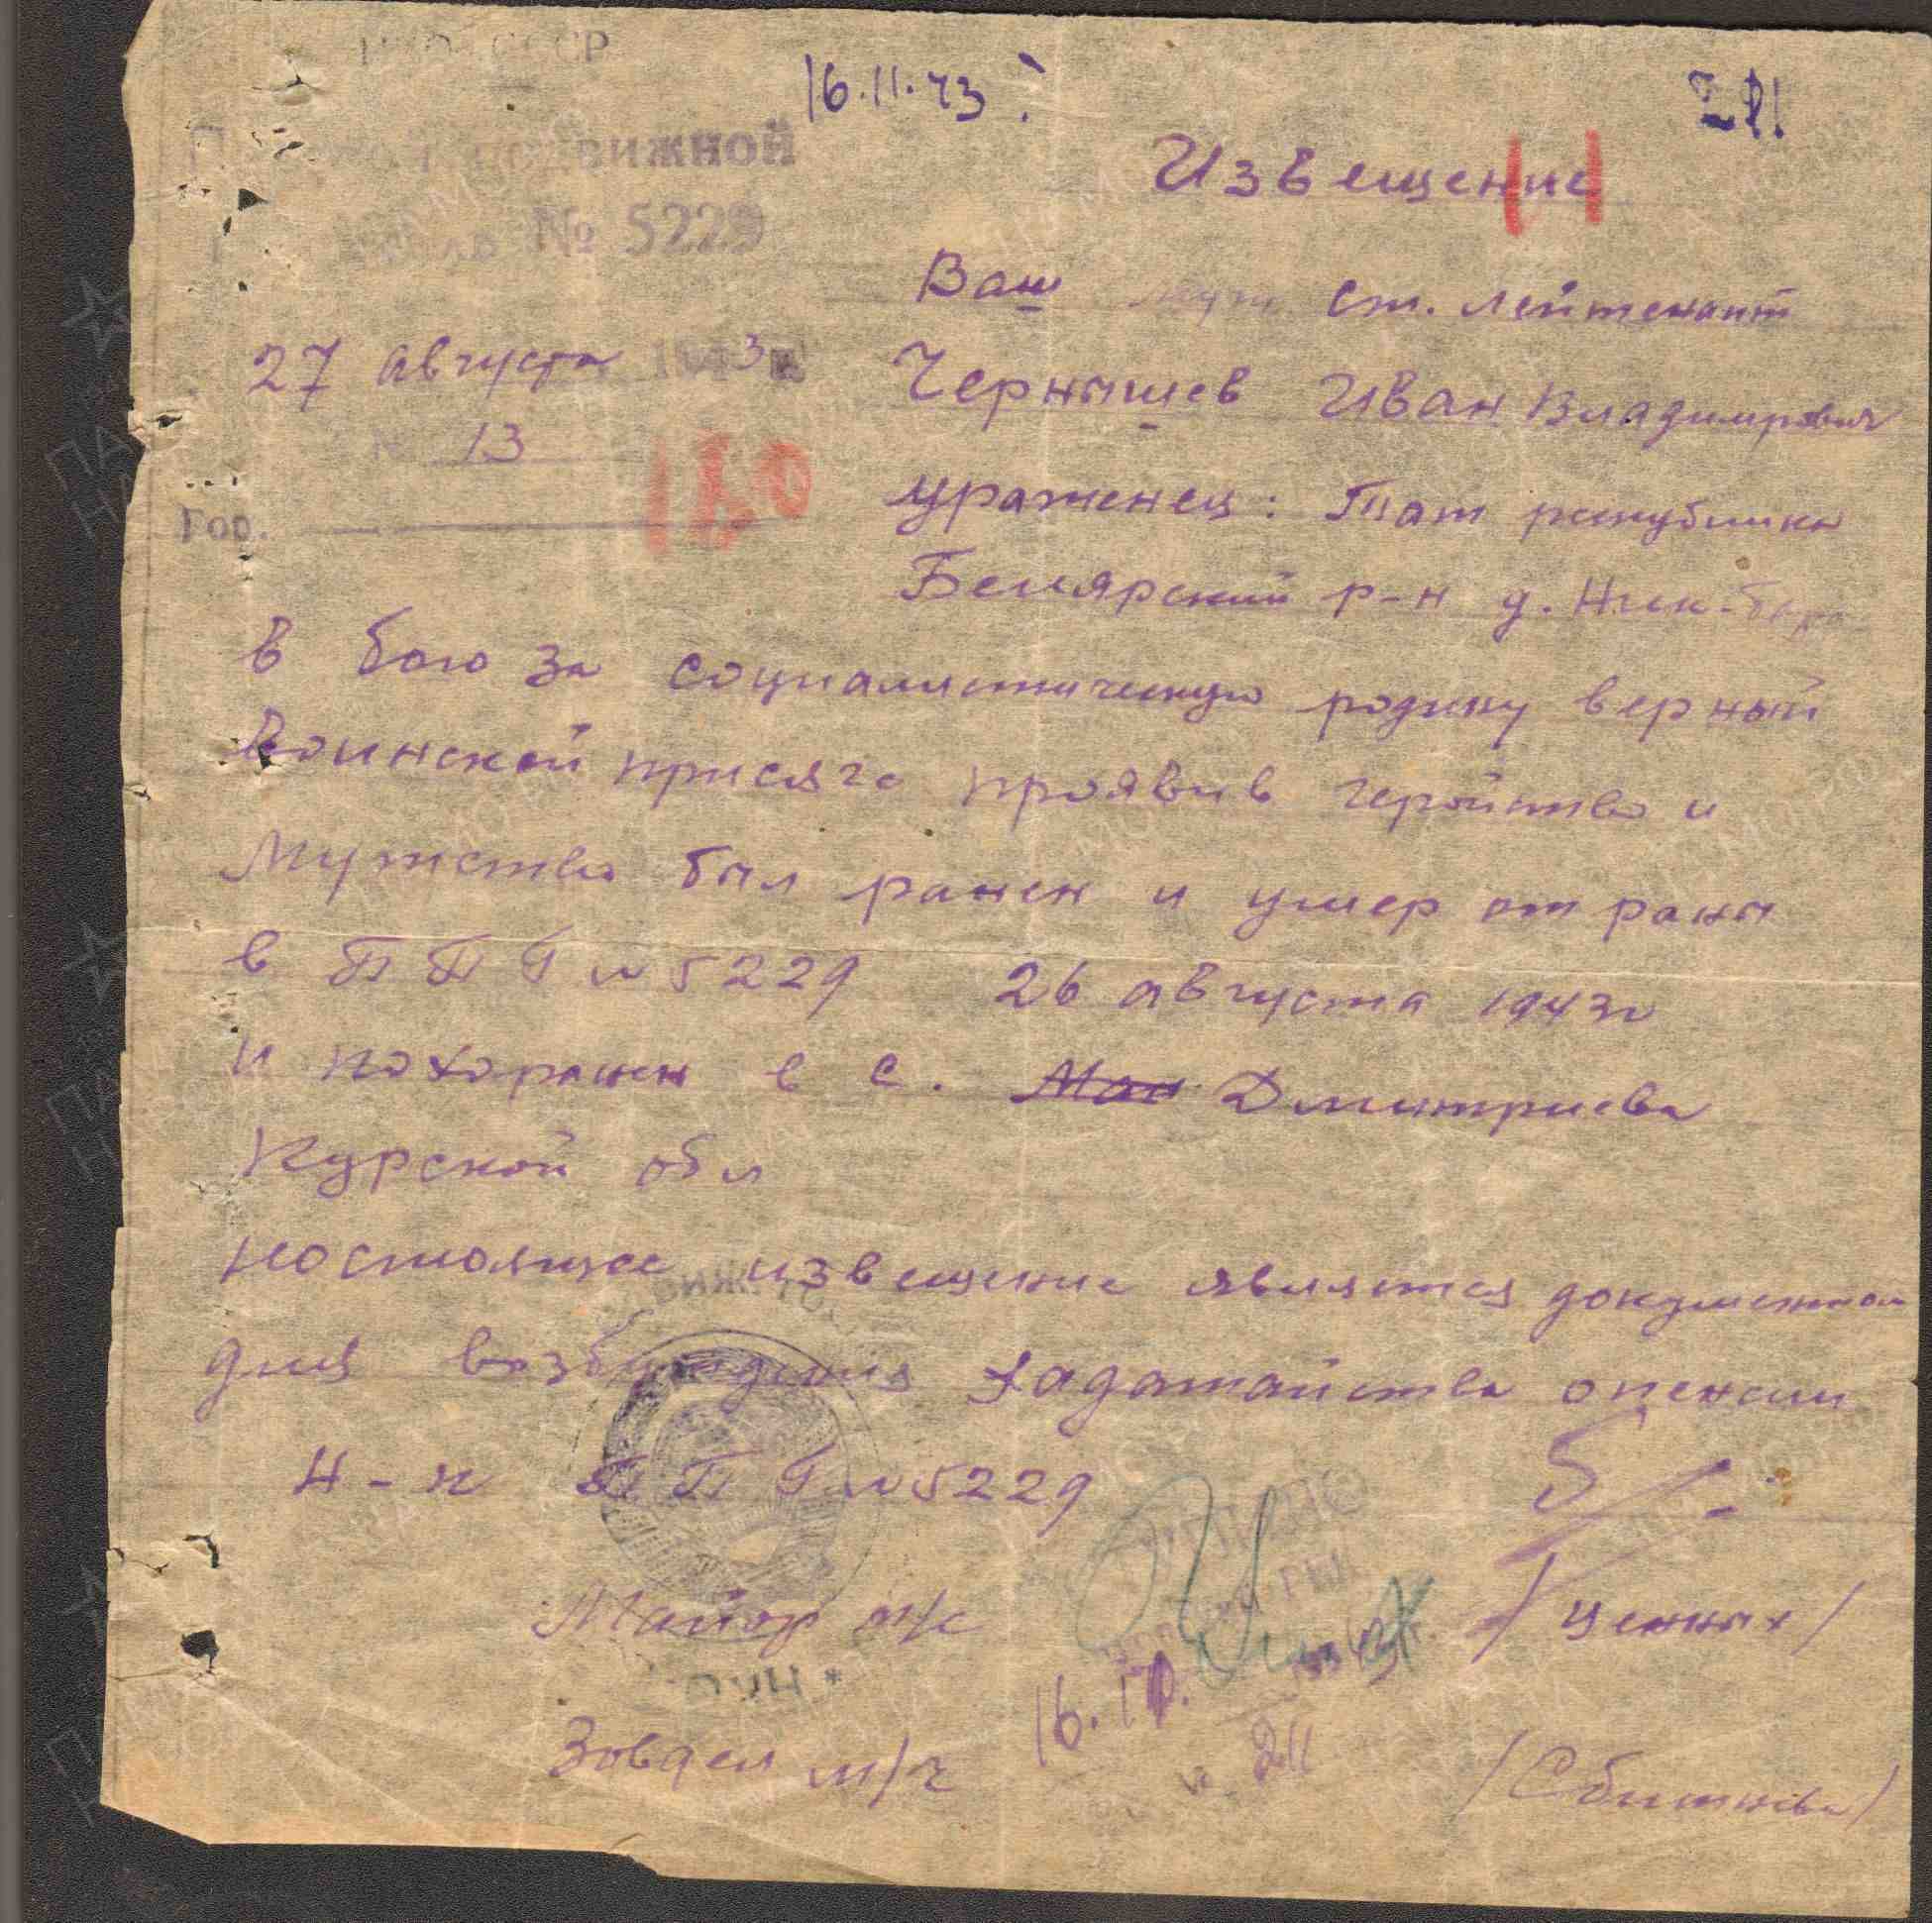 НКО СССР
16.11.43
Полевой подвижной
№ 5229
Извещение
27 августа 1943 г.
№ 13
180
Гор.
Ваш муж ст. лейтенант
Чернышев Иван Владимирович
ураженец: Тат республика
Билярский р-н д. Ник-
в бою за социалистическую родину верный
воинской присяге проявив геройство и
мужество был ранен и умер от раны
в ППГ № 5229 26 августа 1943 г
и похоронен в с. Дмитриева
Курской обл
Настоящее извещение является документом
для возбуждения хадатайства о пенсии
Н-к ППГ № 5229
Майор м/с
/Ценных/
16.10.
Завдел м/ч
/Сбитнева/